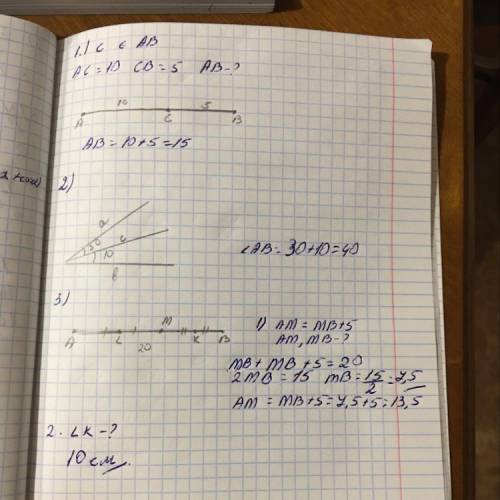 1.) C ∈ AB
AC=10 CB=5 AB-?
10 5
A C B
AB=10+5=15
2)
a
30 c
10
b
∠AB=30+10=40
3)
M
A L K B
20
1) AM=MB+5
AM, MB-?
MB+MB+5=20
2MB=15 MB=15/2=7,5
AM=MB+5=7,5+5=13,5
2. LK-?
10 см.